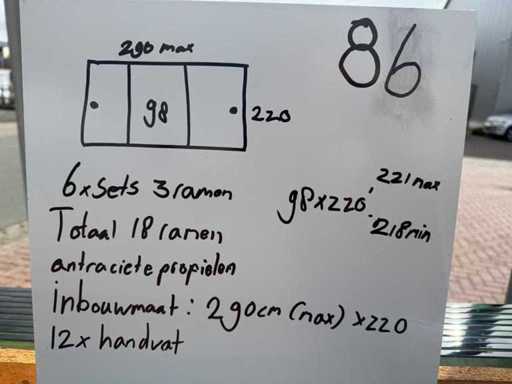 290 max
86
98
220
6x sets 3 ramen
98x220
221 max
218 min
Totaal 18 ramen
antraciete propielen
inbouwmaat: 290cm (max) x220
12x handvat